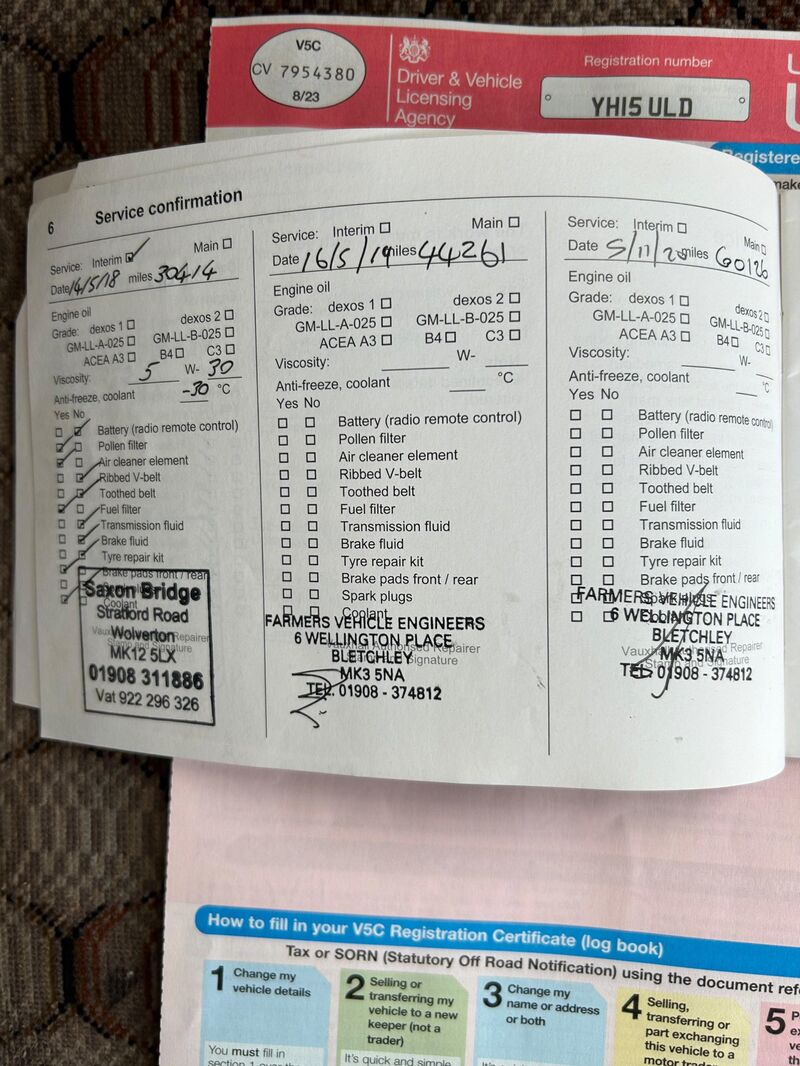 V5C
CV 7954380
8/23
Driver & Vehicle
Licensing
Agency
Registration number
YH15 ULD
Registere
make
6 Service confirmation
Service: Interim Main
Date 14/5/18 miles 30414
Engine oil
Grade: dexos 1 dexos 2
GM-LL-A-025 GM-LL-B-025
ACEA A3 B4 C3
Viscosity: 5 W- 30
Anti-freeze, coolant -30 °C
Yes No
Battery (radio remote control)
Pollen filter
Air cleaner element
Ribbed V-belt
Toothed belt
Fuel filter
Transmission fluid
Brake fluid
Tyre repair kit
Brake pads front / rear
Coolant
Saxon Bridge
Stratford Road
Wolverton
MK12 5LX
01908 311886
Vat 922 296 326
Repairer
Stamp and Signature
Service: Interim Main
Date 16/5/19 miles 44261
Engine oil
Grade: dexos 1 dexos 2
GM-LL-A-025 GM-LL-B-025
ACEA A3 B4 C3
Viscosity: W-
Anti-freeze, coolant °C
Yes No
Battery (radio remote control)
Pollen filter
Air cleaner element
Ribbed V-belt
Toothed belt
Fuel filter
Transmission fluid
Brake fluid
Tyre repair kit
Brake pads front / rear
Spark plugs
Coolant
FARMERS VEHICLE ENGINEERS
6 WELLINGTON PLACE
Vauxhall Authorised Repairer
BLETCHLEY
Signature
MK3 5NA
TEL. 01908 - 374812
Service: Interim Main
Date 5/11/20 miles 60126
Engine oil
Grade: dexos 1 dexos 2
GM-LL-A-025 GM-LL-B-025
ACEA A3 B4 C3
Viscosity: W-
Anti-freeze, coolant °C
Yes No
Battery (radio remote control)
Pollen filter
Air cleaner element
Ribbed V-belt
Toothed belt
Fuel filter
Transmission fluid
Brake fluid
Tyre repair kit
Brake pads front / rear
Spark plugs
FARMERS VEHICLE ENGINEERS
6 WELLINGTON PLACE
BLETCHLEY
Vauxhall Authorised Repairer
MK3 5NA
Stamp and Signature
TEL. 01908 - 374812
How to fill in your V5C Registration Certificate (log book)
Tax or SORN (Statutory Off Road Notification) using the document ref
1 Change my
vehicle details
You must fill in
2 Selling or
transferring my
vehicle to a new
keeper (not a
trader)
It's quick and simple
3 Change my
name or address
or both
4 Selling,
transferring or
part exchanging
this vehicle to a
motor trade
5